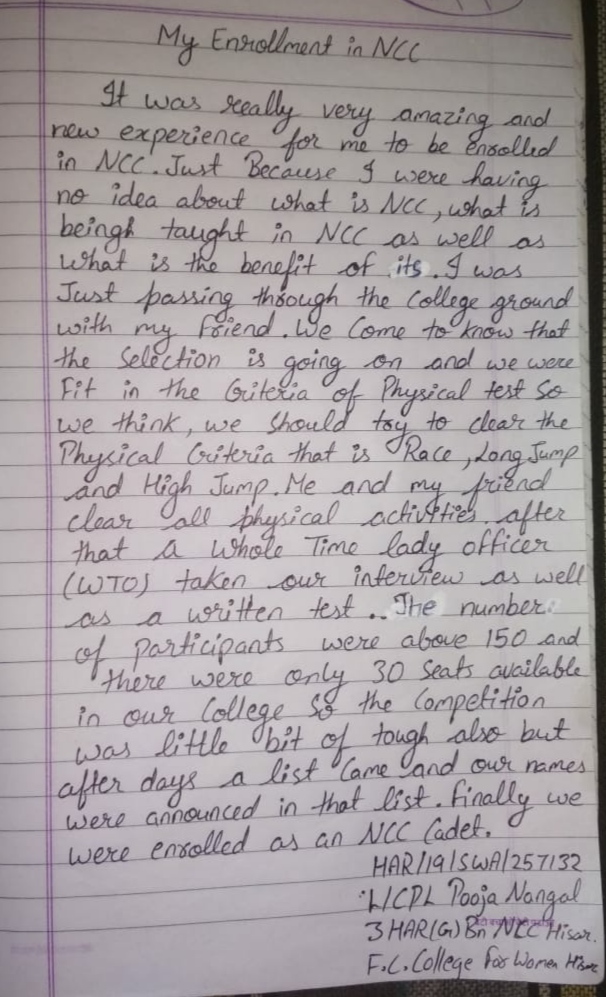 My Enrollment in NCC
It was really very amazing and
new experience for me to be enrolled
in NCC. Just Because I were having
no idea about what is NCC, what is
beingh taught in NCC as well as
what is the benefit of its. I was
Just passing through the College ground
with my friend. We Come to know that
the Selection is going on and we were
Fit in the Criteria of Physical test So
we think, we should try to clear the
Physical Criteria that is Race, Long Jump
and High Jump. Me and my friend
clear all physical activities. after
that a Whole Time lady officer
(WTO) taken our interview as well
as a written test .. The number
of participants were above 150 and
there were only 30 Seats available
in our College So the Competition
was little bit of tough also but
after days a list Came and our names
were announced in that list. Finally we
were enrolled as an NCC Cadet.
HAR/19/SWA/257132
L/CPL Pooja Nangal
3 HAR(G) Bn NCC Hisar.
F.C. College For Women Hisar